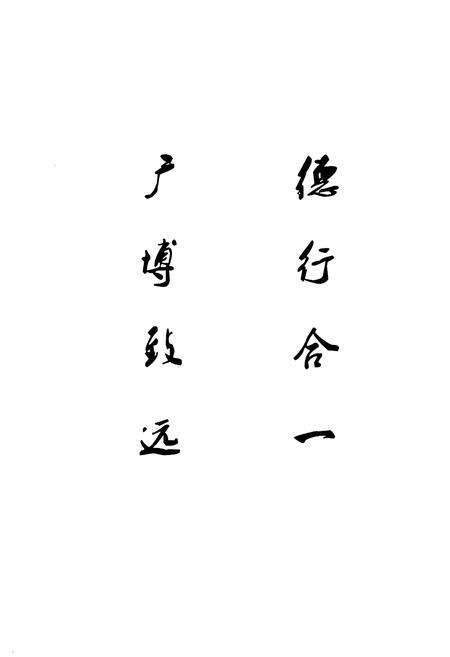 德行合一
广博致远